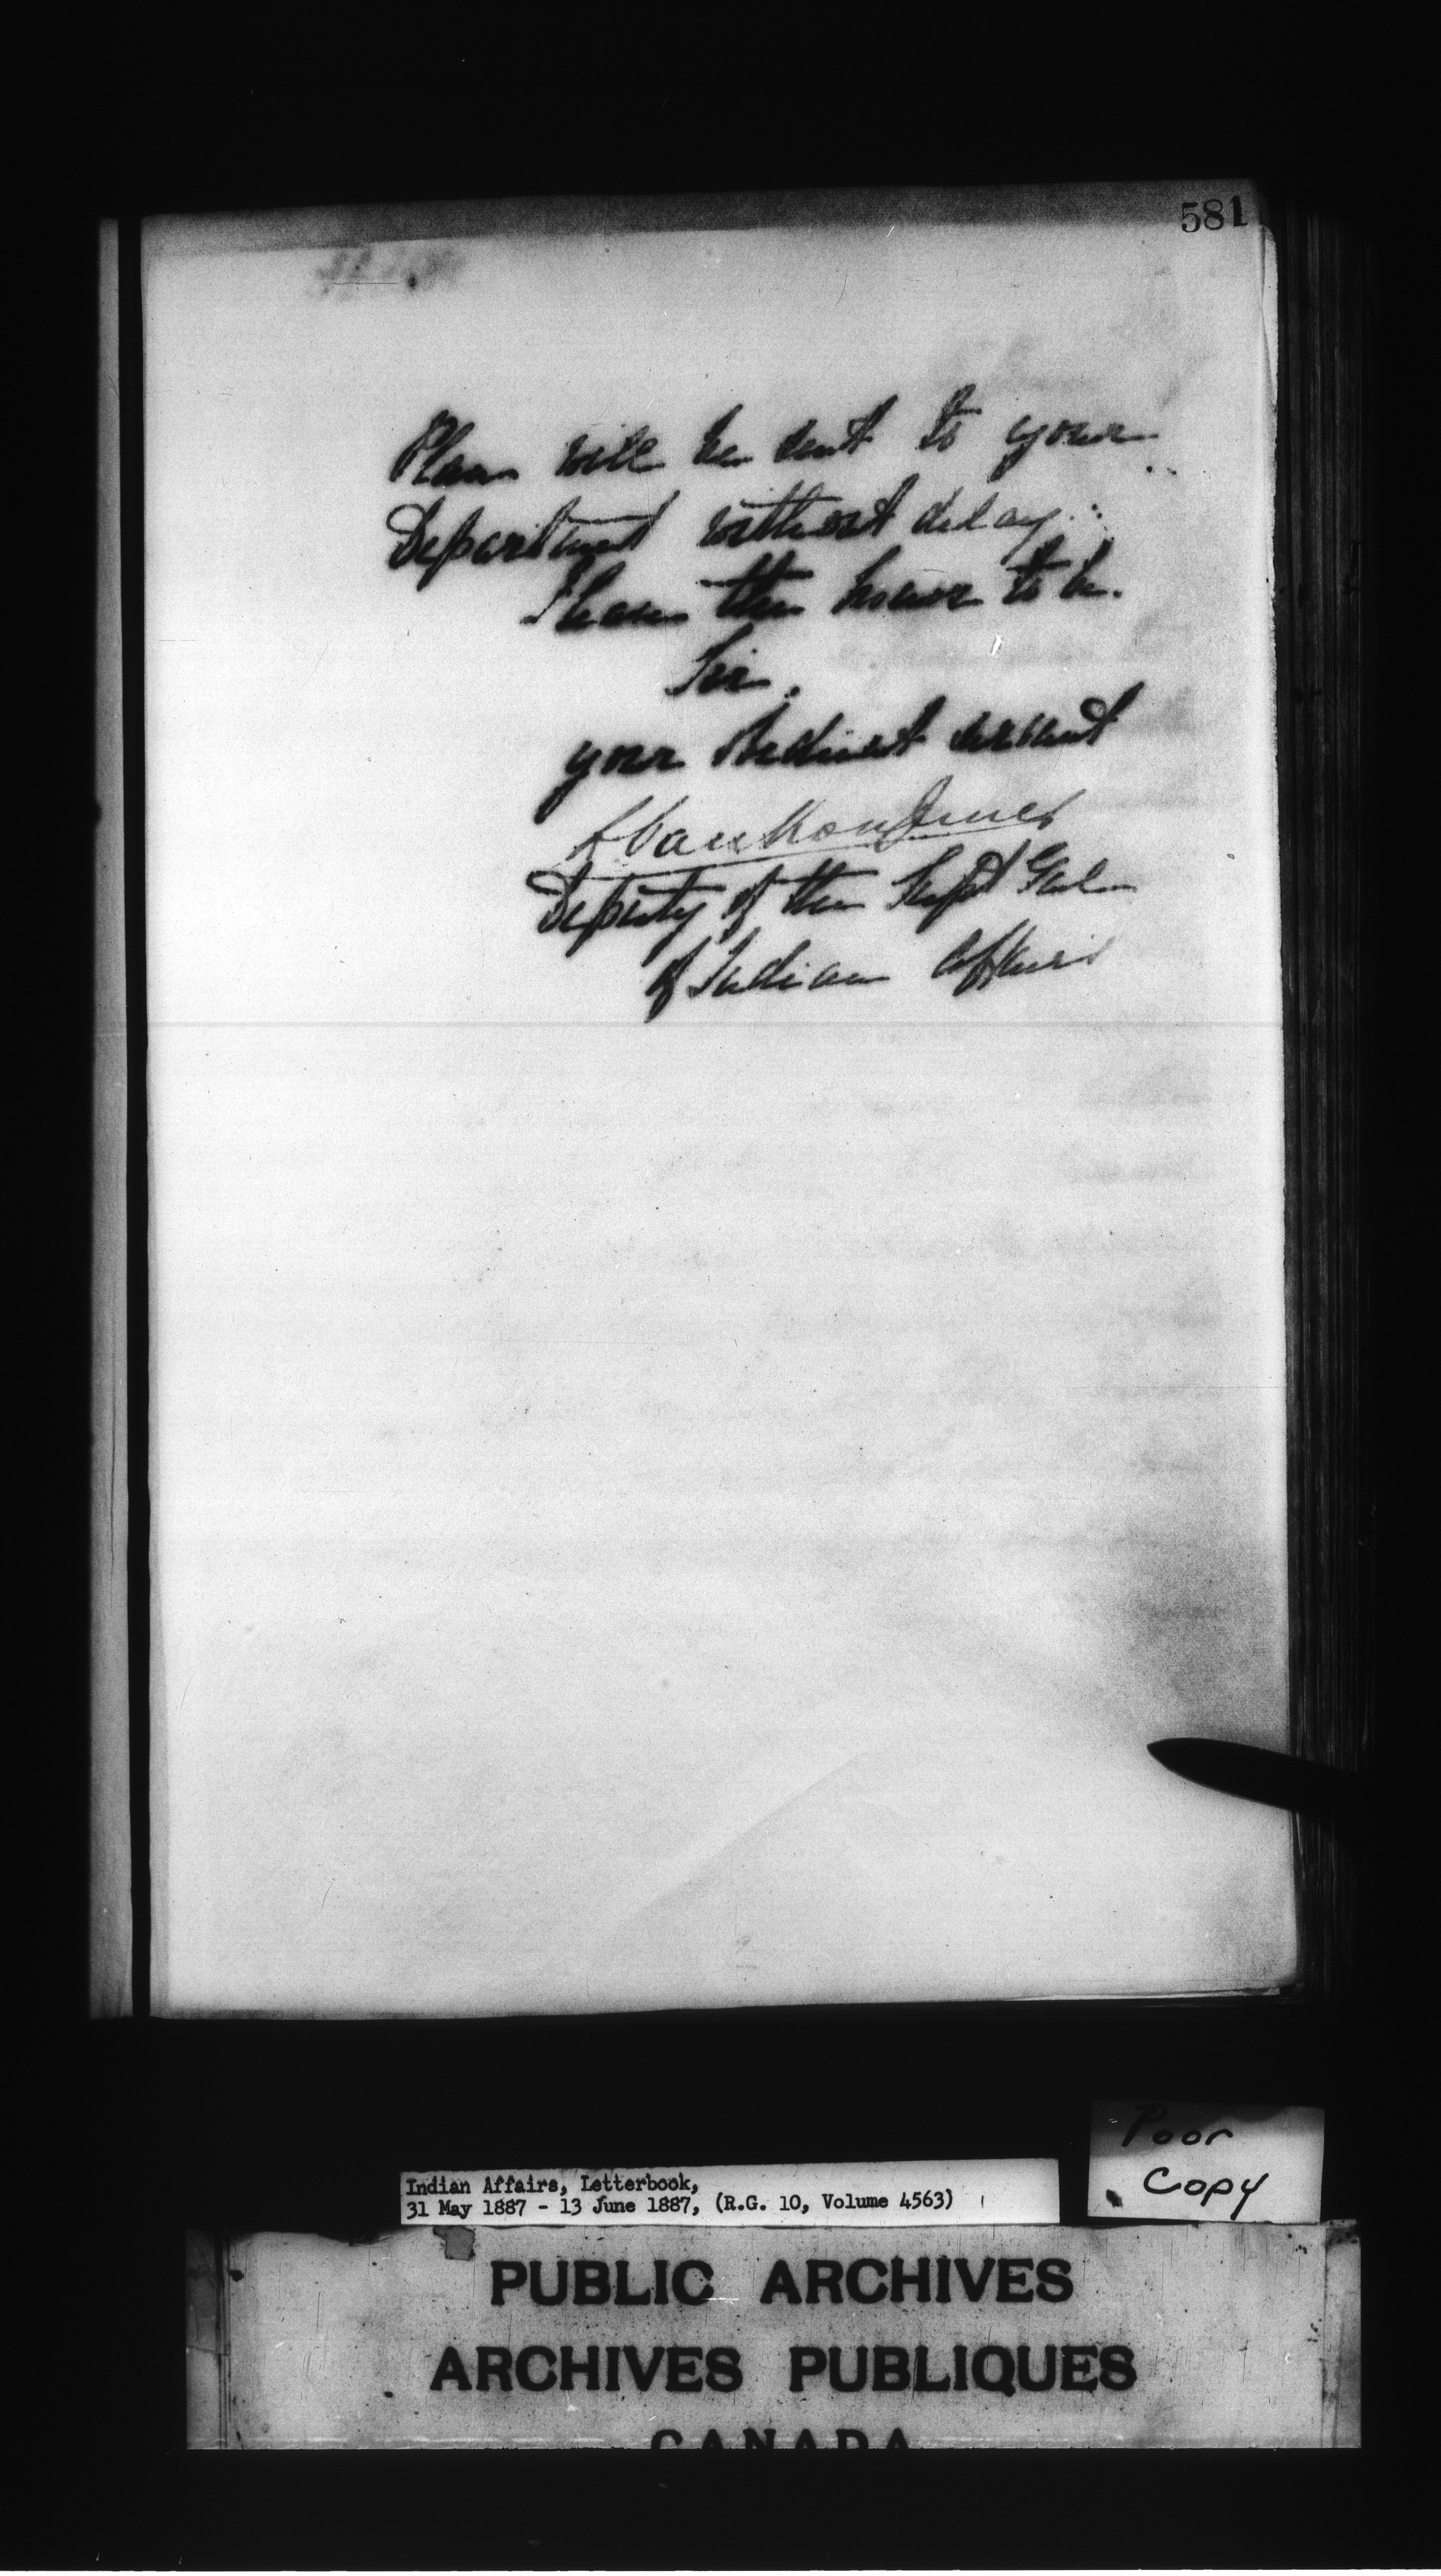 581
Plan will be sent to your
Department without delay.
I have the honor to be.
Sir,
your obedient servant
L. VanKoughnet
Deputy of the Supt Genl
of Indian Affairs
Poor
Copy
Indian Affairs, Letterbook,
31 May 1887 - 13 June 1887, (R.G. 10, Volume 4563)
PUBLIC ARCHIVES
ARCHIVES PUBLIQUES
CANADA